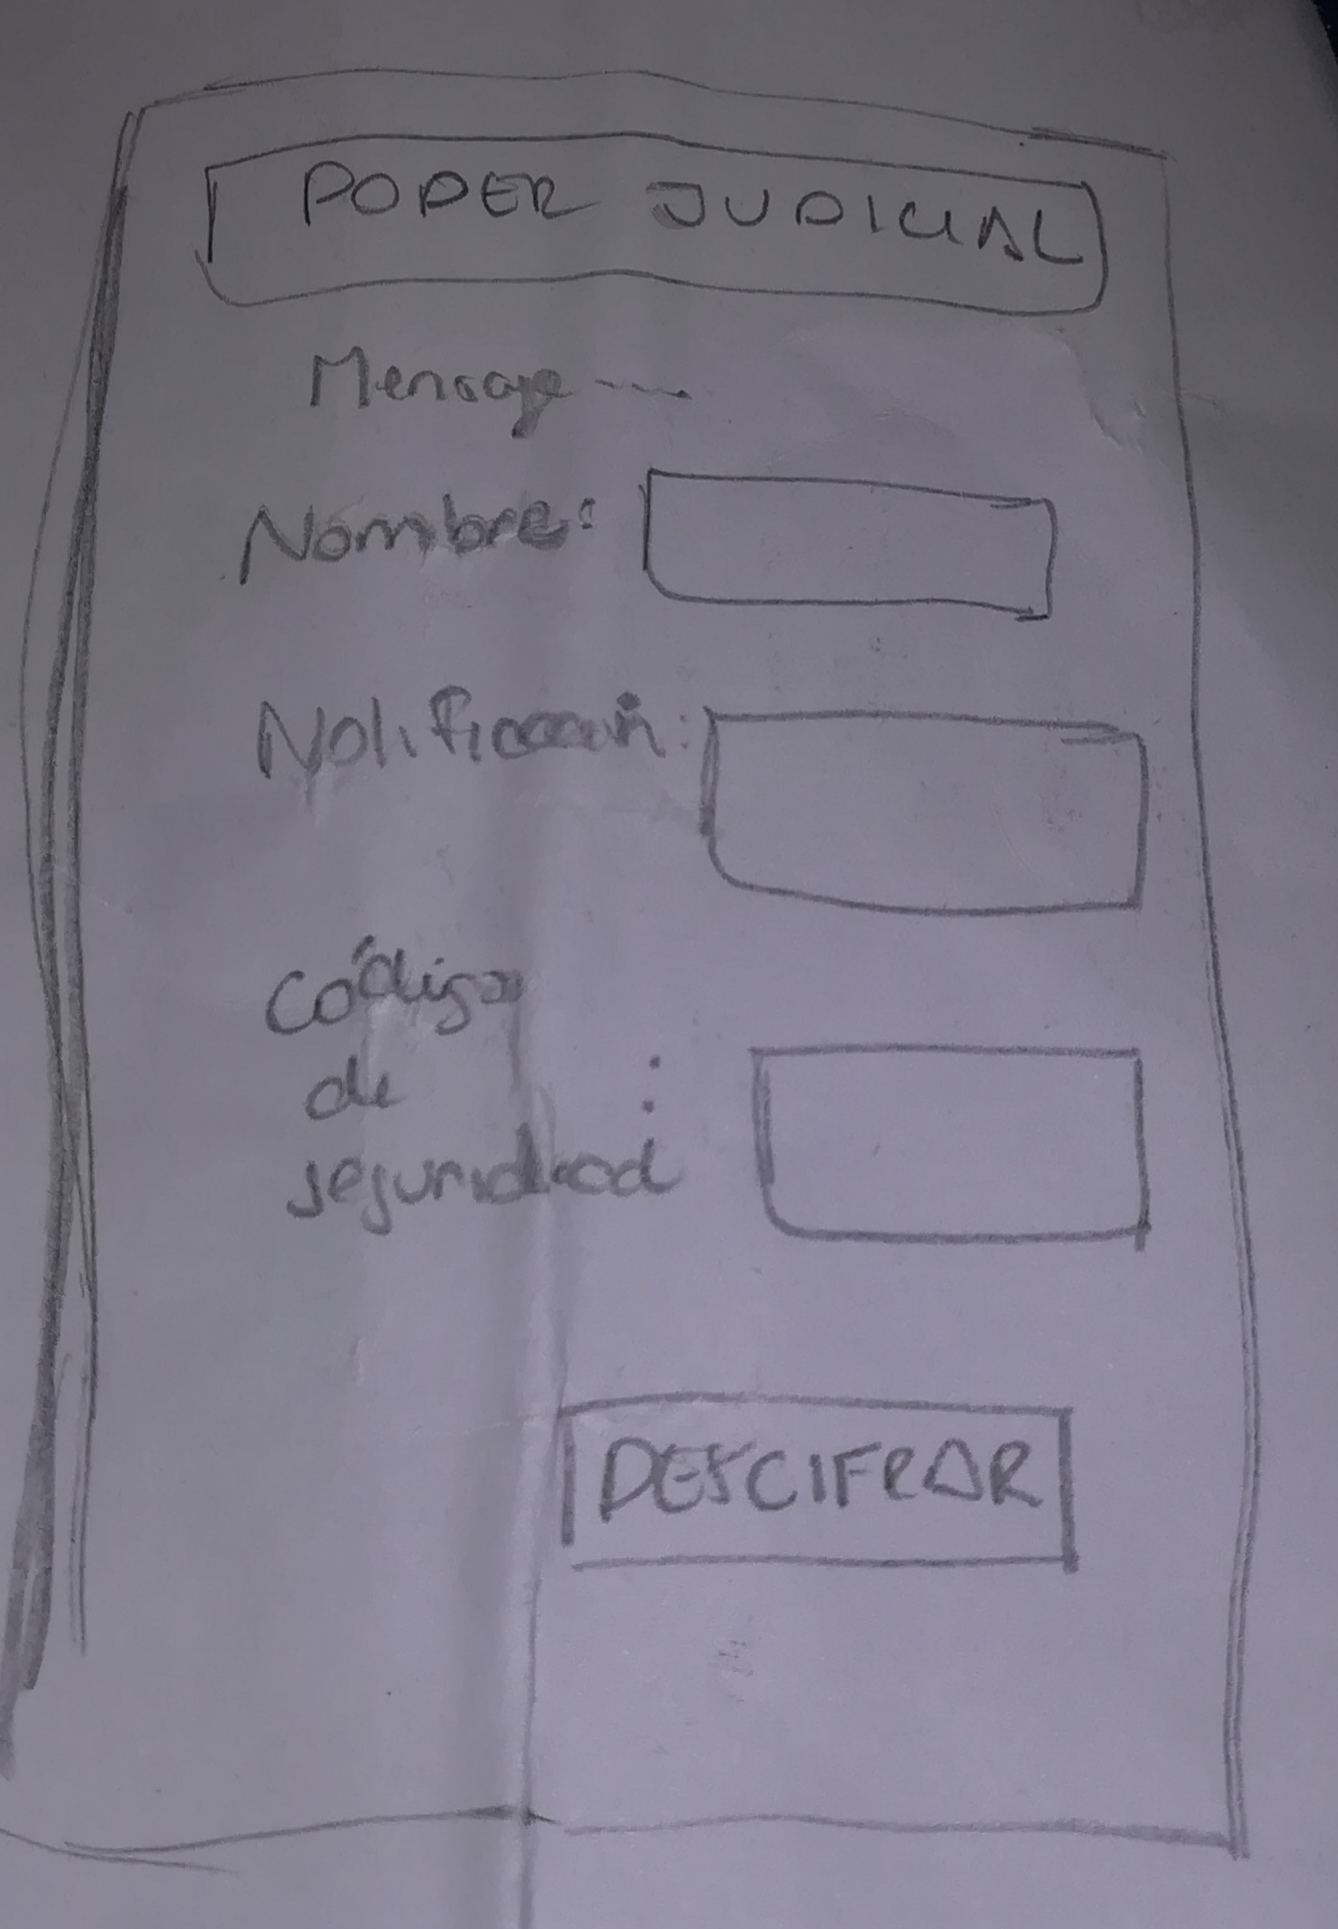 PODER JUDICIAL
Mensaje ----
Nombre:
Notificación:
Código
de :
seguridad
DESCIFRAR